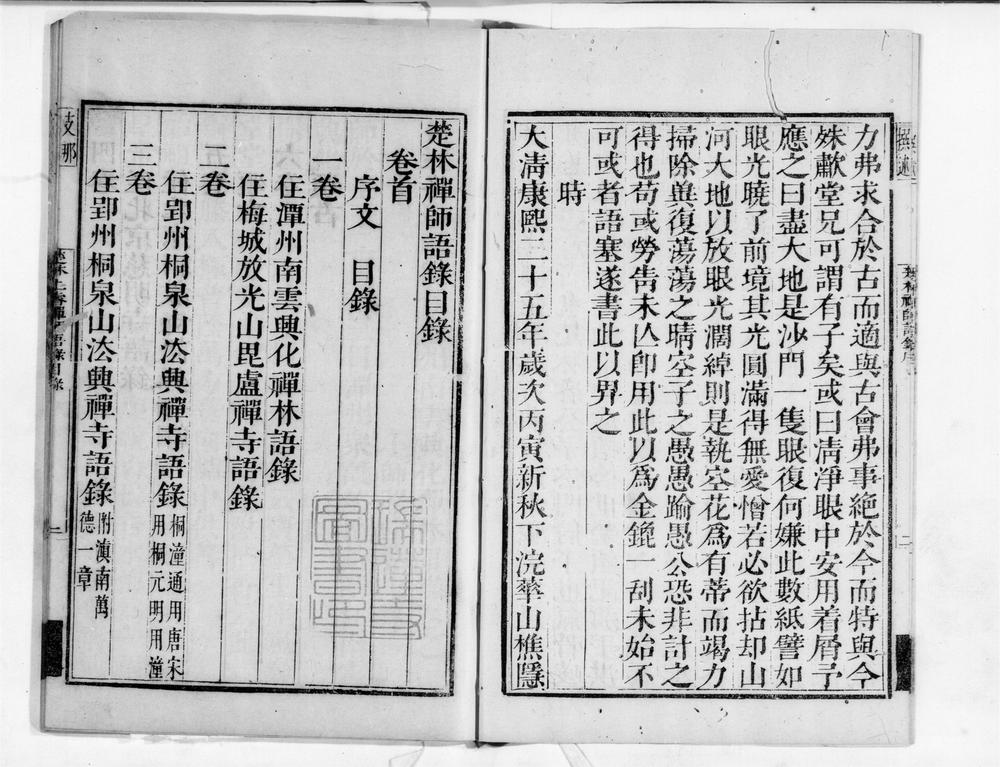 撰述
力弗求合於古而適與古會弗事絕於今而特與今
殊歗堂兄可謂有子矣或曰淸淨眼中安用着屑予
應之曰盡大地是沙門一隻眼復何嫌此數紙譬如
眼光曉了前境其光圓滿得無愛憎若必欲拈却山
河大地以放眼光濶綽則是執空花爲有蒂而竭力
掃除與復蕩蕩之晴空子之愚愚踰愚公恐非計之
得也苟或勞吿未亾卽用此以爲金鎞一刮未始不
可或者語塞遂書此以畀之
時
大淸康熙二十五年歲次丙寅新秋下浣華山樵隱
楚林禪師語錄序
二
楚林禪師語錄目錄
卷首
序文　目錄
一卷
住潭州南雲興化禪林語錄
住梅城放光山毘盧禪寺語錄
二卷
住郢州桐泉山法興禪寺語錄 桐潼通用唐宋
用桐元明用潼
三卷
住郢州桐泉山法興禪寺語錄 附滇南萬
德一章
支那
楚林上睿禪師語錄目錄
一